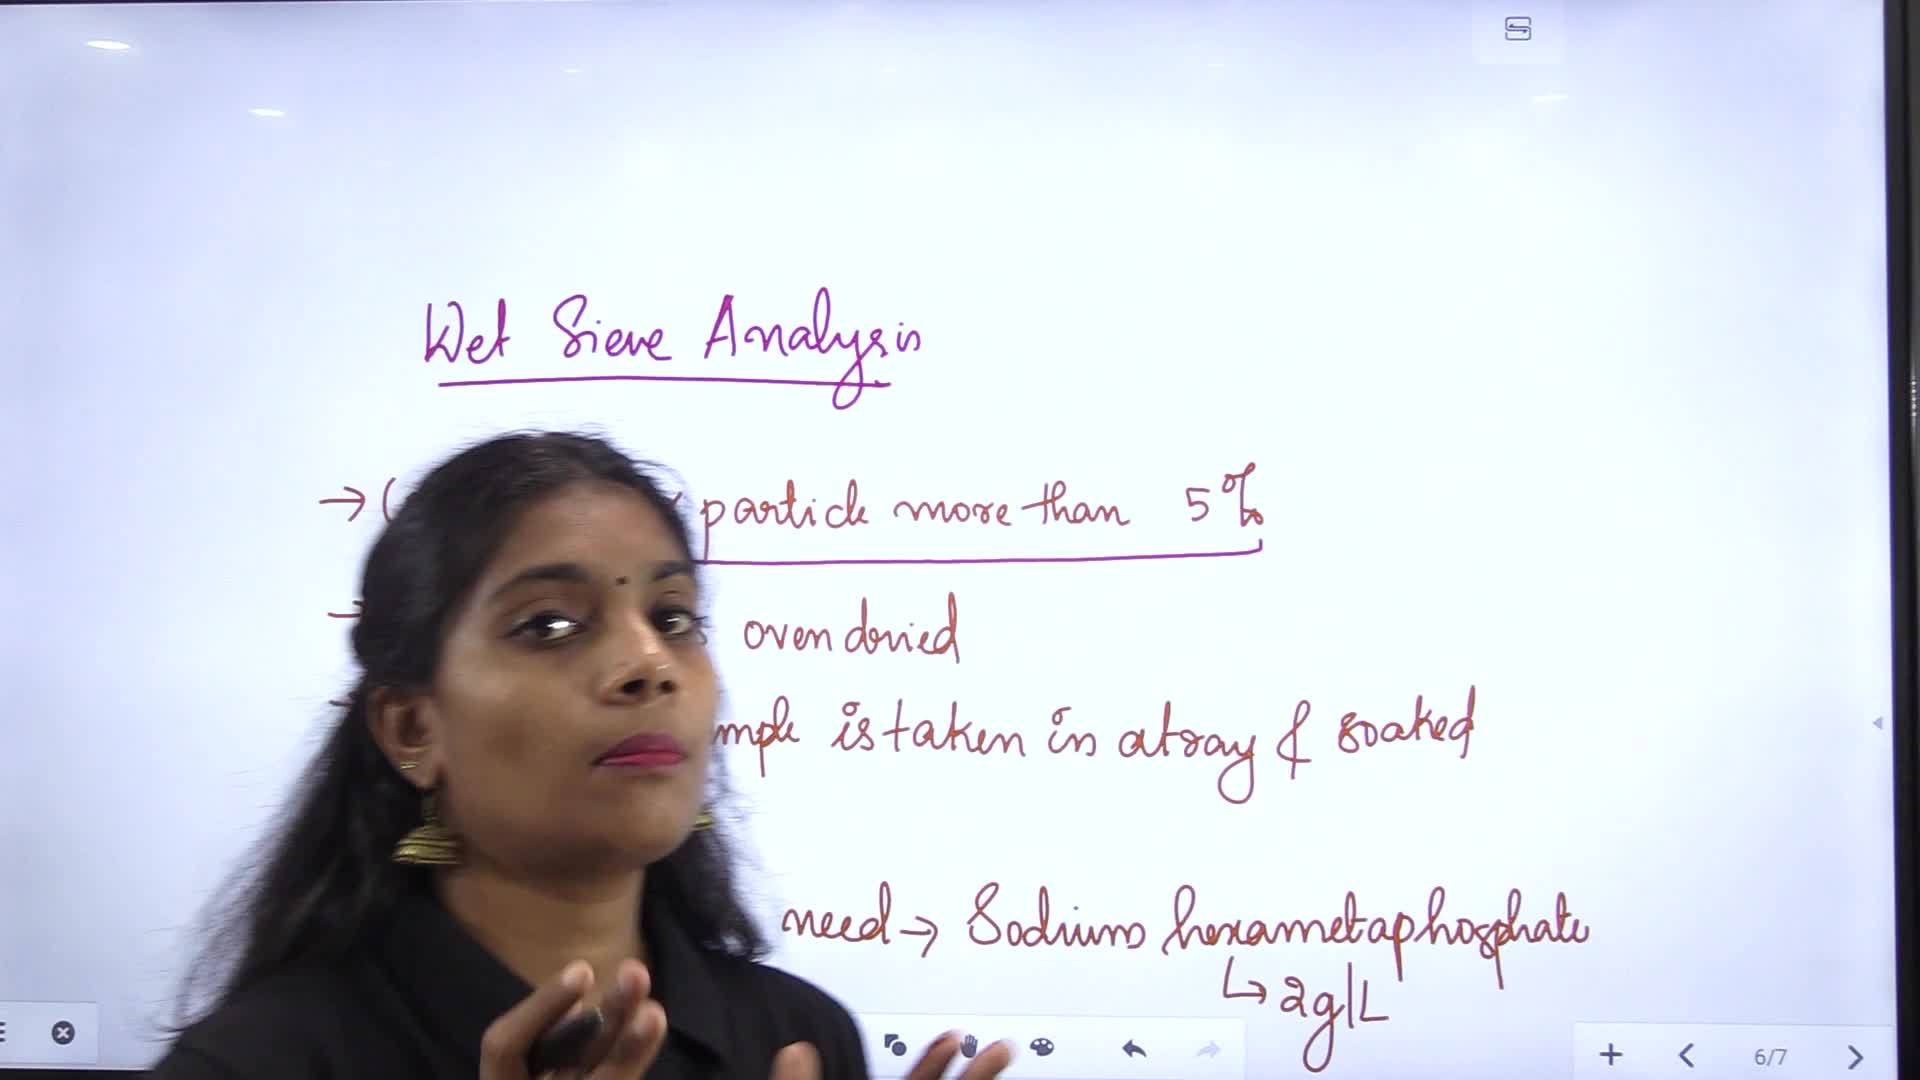 Wet Sieve Analysis
→ particle more than 5%
oven dried
is taken in a tray & soaked
need → Sodium hexametaphosphate
↳ 2g/L
6/7